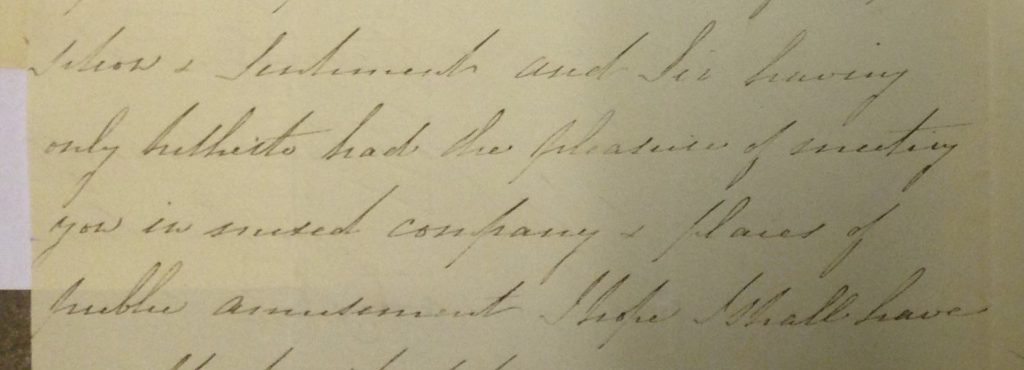 sition & Sentiment and Sir having
only hitherto had the pleasure of meeting
you in mixed company & places of
public amusement I hope I shall have